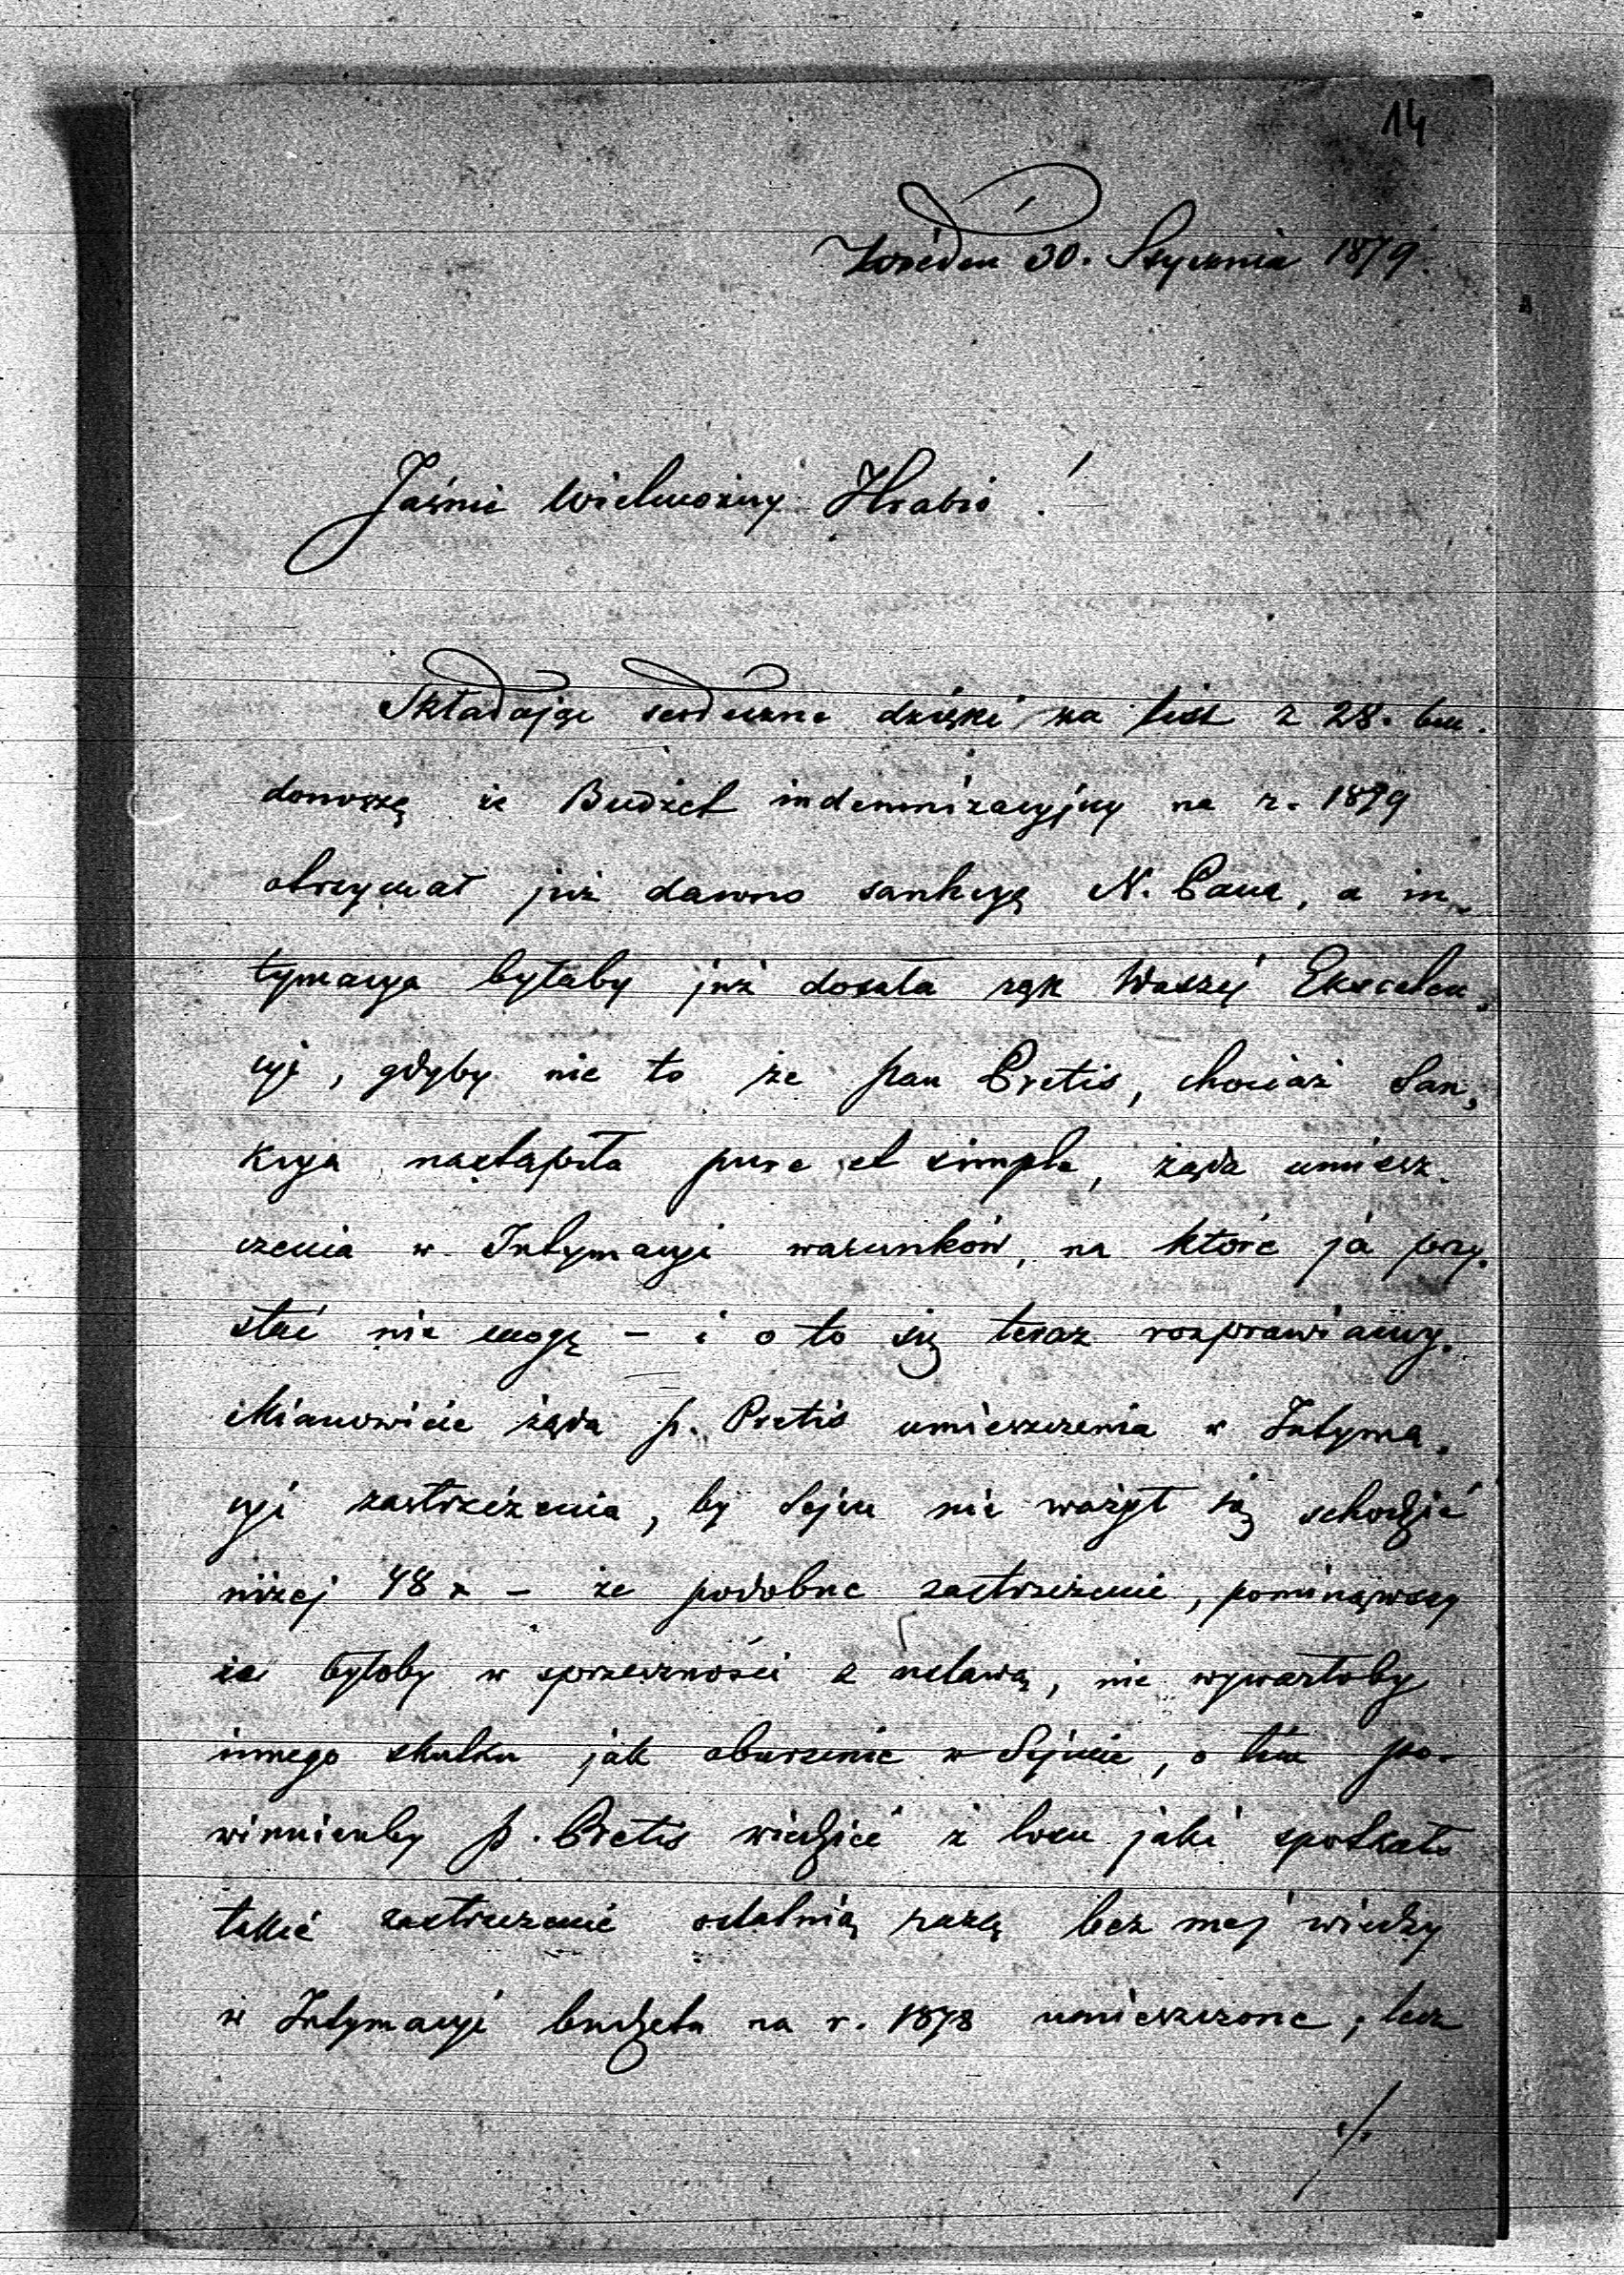 14
Wiédeń 30. Stycznia 1879.
Jaśnie Wielmożny Hrabio!
Składając serdeczne dzięki za list z 28. bm.
donoszę że Budżet indemnizacyjny na r. 1879
otrzymał już dawno sankcyę N. Pana, a in-
tymacya byłaby już doszła rąk Waszéj Ekscelen-
cyi, gdyby nie to że pan Pretis, chociaż San-
kcya nastąpiła pure et simple, żąda umiesz-
czenia w Intymacyi warunków, na które ja przy-
stać nie mogę – i o to się teraz rozprawiamy.
Mianowicie żąda p. Pretis umieszczenia w Intyma-
cyi zastrzeżenia, by Sejm nie ważył się schodzić
niżej 48 x – że podobne zastrzeżenie, pominąwszy
że byłoby w sprzeczności z ustawą, nie wywarłoby
innego skutku jak oburzenie w Sejmie, o tém po-
winienby p. Pretis wiedzieć z losu jaki spotkało
takie zastrzeżenie ostatnią razą bez mej wiedzy
w Intymacyi budżetu na r. 1878 umieszczone; lecz
./.